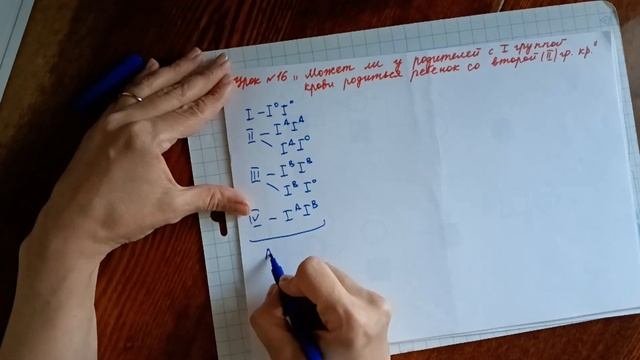 Урок №16 „Может ли у родителей с I группой
крови родиться ребенок со второй (II) гр. кр."
I – I⁰I⁰
II – IᴬIᴬ
IᴬI⁰
III – IᴮIᴮ
IᴮI⁰
IV – IᴬIᴮ